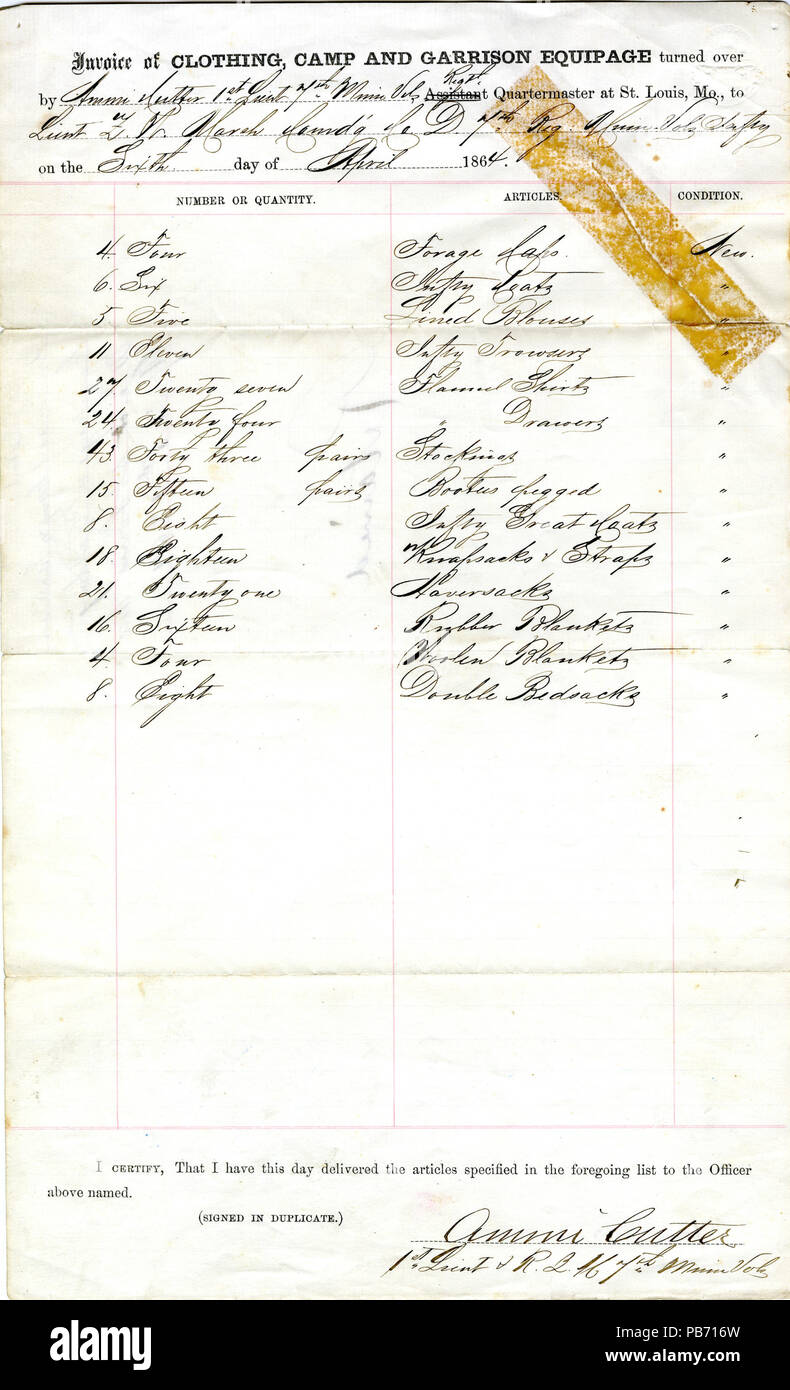 Invoice of CLOTHING, CAMP AND GARRISON EQUIPAGE turned over
by Ammi Cutter 1st Lieut 7th Minn Vols Regtl. Assistant Quartermaster at St. Louis, Mo., to
Lieut Marsh Comd'g Co D. 7th Reg. Minn Vols Infty
on the Sixth day of April 1864.
NUMBER OR QUANTITY. ARTICLES. CONDITION.
4. Four Forage Caps. New.
6. Six Infty Coats "
5. Five Lined Blouses "
11 Eleven Infty Trowsers "
27. Twenty seven Flannel Shirts "
24. Twenty four " Drawers "
43. Forty three pairs Stockings "
15. Fifteen pairs Bootees pegged "
8. Eight Infty Great Coats "
18. Eighteen Knapsacks & Straps "
21. Twenty one Haversacks "
16. Sixteen Rubber Blankets "
4. Four Woolen Blankets "
8. Eight Double Bedsacks "
I CERTIFY, That I have this day delivered the articles specified in the foregoing list to the Officer
above named.
(SIGNED IN DUPLICATE.)
Ammi Cutter
1st Lieut & R. Q. M 7th Minn Vols
alamy
Image ID: PB716W
www.alamy.com